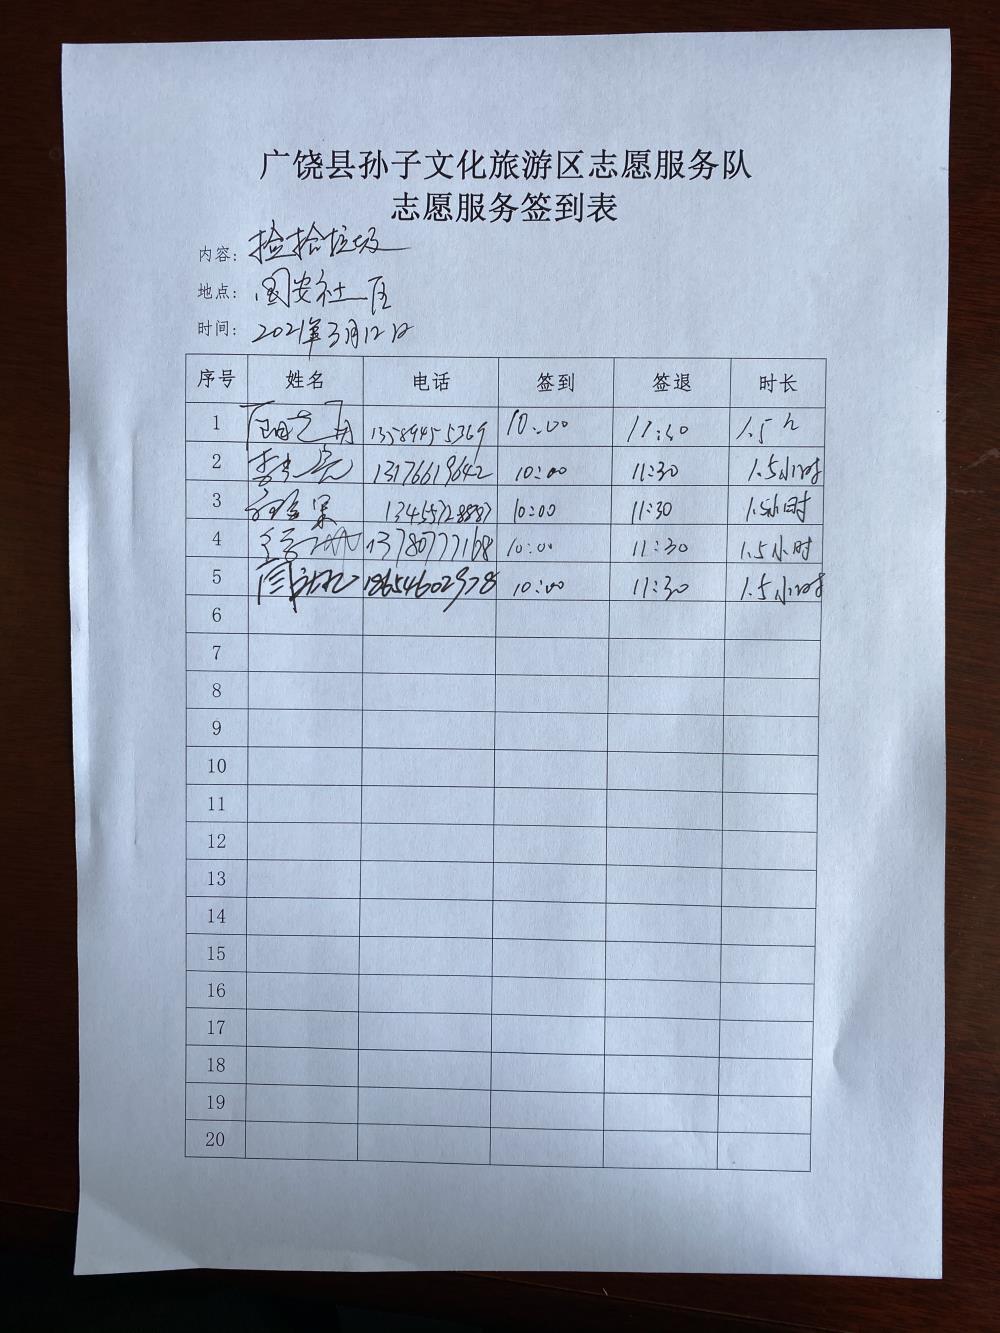 广饶县孙子文化旅游区志愿服务队
志愿服务签到表
内容: 捡拾垃圾
地点: 国安社区
时间: 2021年3月12日
序号 姓名 电话 签到 签退 时长
1 13589455369 10:00 11:30 1.5h
2 13176619642 10:00 11:30 1.5小时
3 10:00 11:30 1.5小时
4 13780777168 10:00 11:30 1.5小时
5 18654602978 10:00 11:30 1.5小时
6
7
8
9
10
11
12
13
14
15
16
17
18
19
20